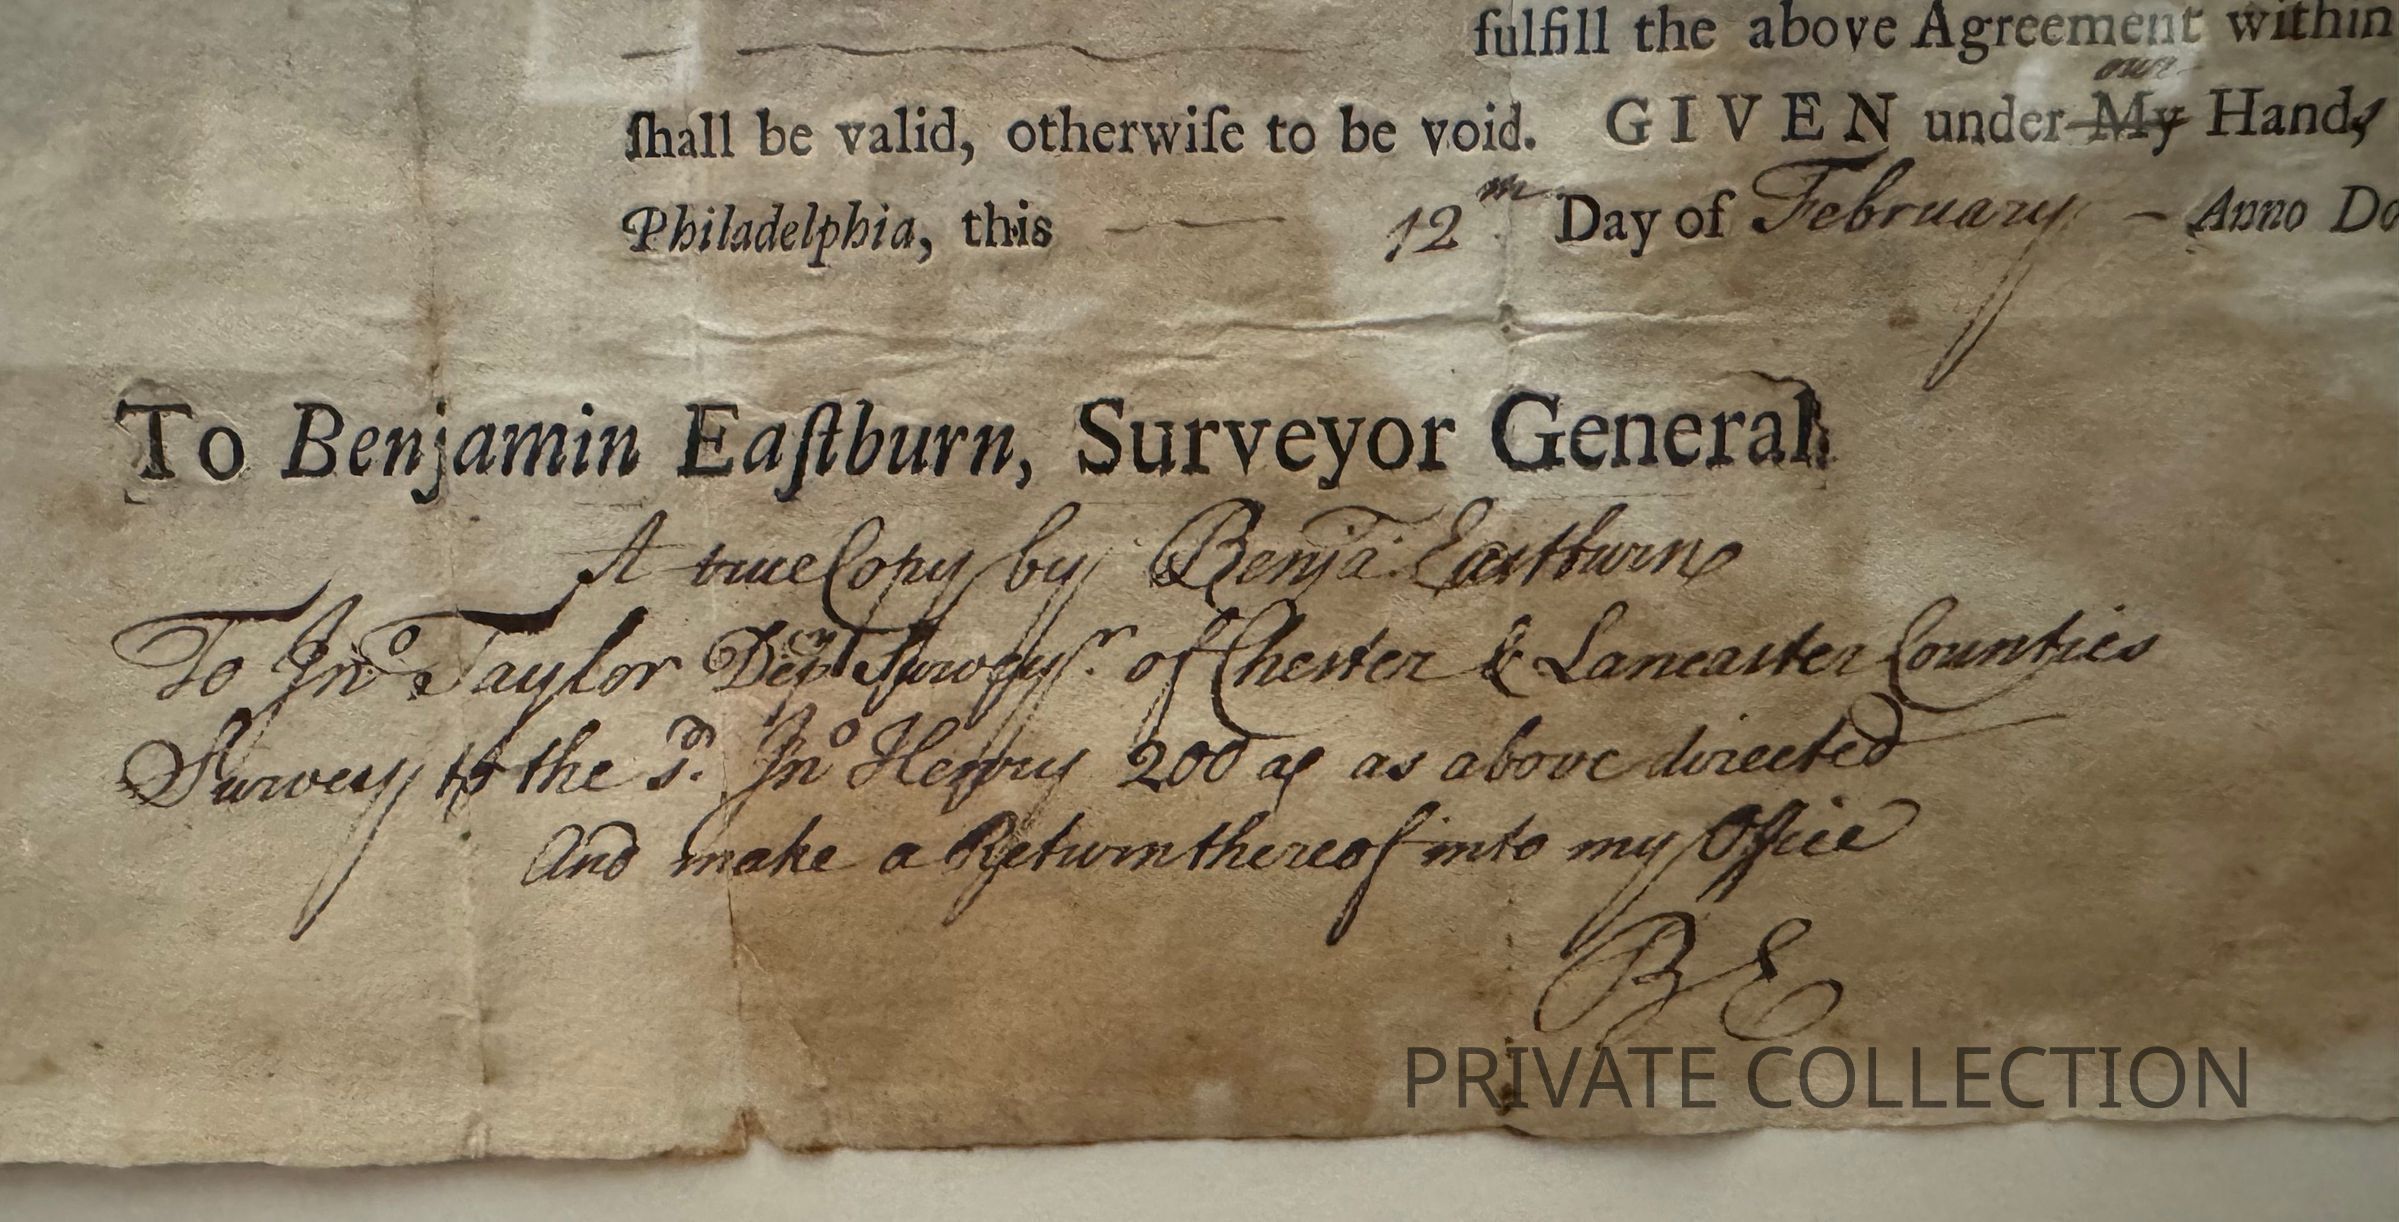 fulfill the above Agreement within
our
ſhall be valid, otherwiſe to be void. GIVEN under My Hands
Philadelphia, this 12th Day of February – Anno Do
To Benjamin Eaſtburn, Surveyor General
A true Copy by Benja. Eastburn
To Jno Taylor Depty Surveyr. of Chester & Lancaster Counties
Survey to the sd. Jno Henry 200 as as above directed
And make a Return thereof into my Office
BE
PRIVATE COLLECTION